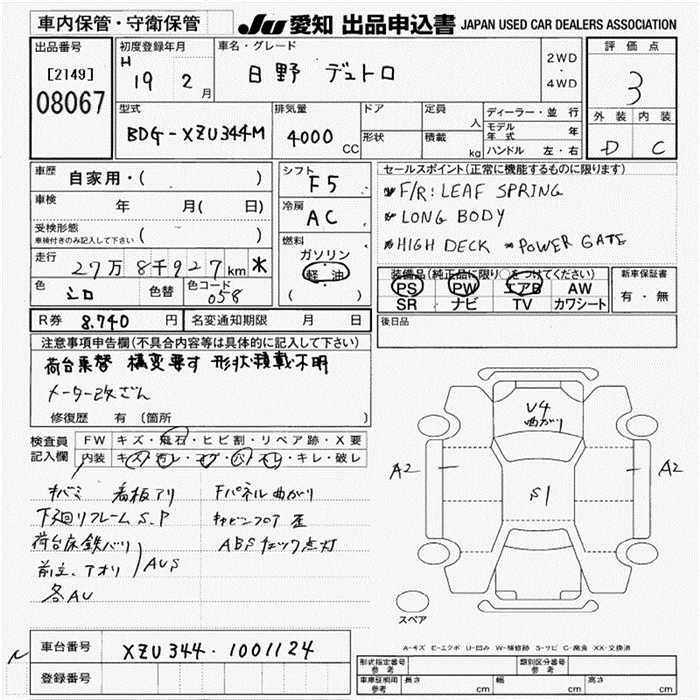 車内保管・守衛保管 JU 愛知 出品申込書 JAPAN USED CAR DEALERS ASSOCIATION
出品番号 初度登録年月 車名・グレード 評価点
[2149] H 19 2月 日野 デュトロ 2WD・4WD 3
08067
型式 排気量 ドア 定員 人 ディーラー・並行 外装 内装
BDG-XZU344M 4000 CC 形状 積載 kg モデル年式 年 D C
ハンドル 左・右
車歴 自家用・( ) シフト F5 セールスポイント(正常に機能するものに限ります)
F/R: LEAF SPRING
車検 年 月( 日) 冷房 AC LONG BODY
受検形態 車検付きのみ記入して下さい ( ) HIGH DECK POWER GATE
走行 27万8千927km ※ 燃料 ガソリン 軽油 ( )
装備品(純正品に限り○をつけてください) 新車保証書
色 シロ 色替 色コード 058 PS PW エアB AW 有・無
SR ナビ TV カワシート
R券 8,740 円 名変通知期限 月 日 後日品
注意事項申告欄(不具合内容等は具体的に記入して下さい)
荷台乗替 構変要す 形状積載不明
メーター改ざん
修復歴 有 (箇所 )
検査員記入欄 FW キズ・飛石・ヒビ割・リペア跡・X要
内装 キズ・汚レ・コゲ・穴・スレ・キレ・破レ
キバミ 看板アリ Fパネル曲がり
下廻りフレームS.P キャビンフロア 歪
荷台床鉄バリ ABSチェック点灯
前立、アオリ AUS
各AU
V4
曲がり
A2 A2
S1
スペア
A-キズ E-エクボ U-凹み W-補修跡 S-サビ C-腐食 XX-交換済
車台番号 XZU344-1001124
登録番号
形式指定番号 参考 類別区分番号 参考
車庫証明用 参考 長さ cm 幅 cm 高さ cm